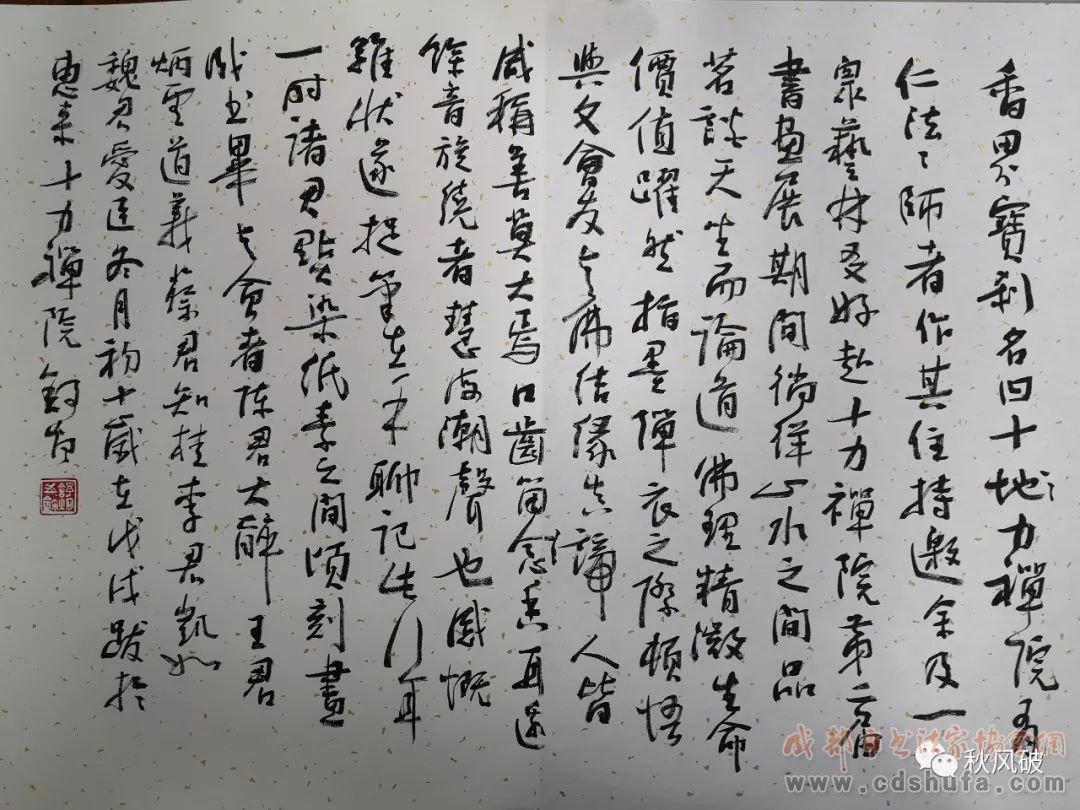 香界寶刹名曰十地力禪院有
仁法々師者作其住持邀余及一
眾藝林友好赴十力禪院第二屆
書画展期間徜徉山水之間品
茗談天坐而論道佛理精微生命
價值躍然指墨禪衣之際頓悟
與文會友与佛結緣
人皆
咸稱善莫大焉口齒留念香耳邊
餘音旋繞者慧海潮聲也感慨
難狀遂捉筆在手聊記此行耳
一时諸君點染紙素之間頃刻畫
成书畢与會者陳君大醉王君
炳雲道義蔡君知桂李君凱
魏君愛臣冬月初十歲在戊戌跋於
惠来十力禪院
成都市书法家协会网
秋风破
www.cdshufa.com